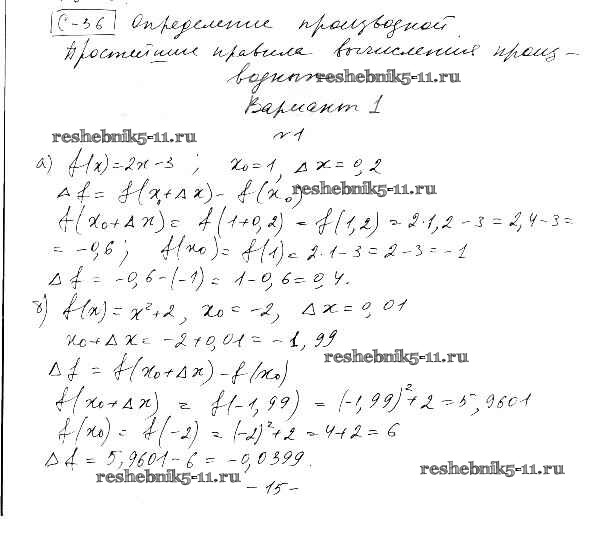 С-36 Определение производной.
Простейшие правила вычисления произ-
водных reshebnik5-11.ru
Вариант 1
reshebnik5-11.ru
№1
а) f(x)=2x-3 ; x₀=1, Δx=0,2
Δf = f(x₀+Δx)- f(x₀) reshebnik5-11.ru
f(x₀+Δx)= f(1+0,2)=f(1,2)=2·1,2-3=2,4-3=
= -0,6; f(x₀)=f(1)=2·1-3=2-3=-1
Δf = -0,6-(-1)= 1-0,6=0,4.
б) f(x)=x²+2, x₀=-2, Δx=0,01
x₀+Δx=-2+0,01=-1,99
reshebnik5-11.ru
Δf = f(x₀+Δx)-f(x₀)
f(x₀+Δx) = f(-1,99) = (-1,99)²+2=5,9601
f(x₀)= f(-2) = (-2)²+2=4+2=6
Δf = 5,9601-6 = -0,0399.
reshebnik5-11.ru reshebnik5-11.ru
-15-